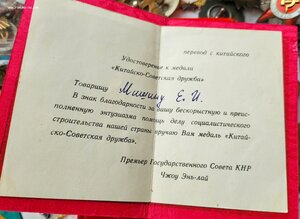 перевод с китайского
Удостоверение к медали
«Китайско-Советская дружба»
Товарищу Мишину Е. И.
В знак благодарности за Вашу бескорыстную и преис-
полненную энтузиазма помощь делу социалистического
строительства нашей страны вручаю Вам медаль «Китай-
ско-Советская дружба».
Премьер Государственного Совета КНР
Чжоу Энь-лай